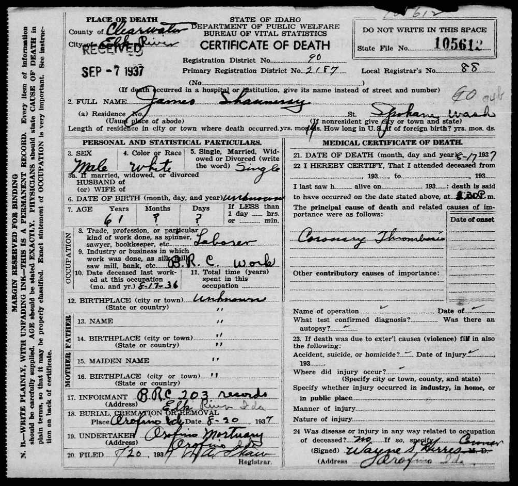 PLACE OF DEATH
County of Clearwater
City of Elk River
RECEIVED
SEP -7 1937
STATE OF IDAHO
DEPARTMENT OF PUBLIC WELFARE
BUREAU OF VITAL STATISTICS
CERTIFICATE OF DEATH
Registration District No. 90
Primary Registration District No. 2187
DO NOT WRITE IN THIS SPACE
State File No. 105612
Local Registrar's No. 88
(No.
(If death occurred in a hospital or institution, give its name instead of street and number)
2. FULL NAME James Shaunessy
(a) Residence No. St. Spokane Wash
(Usual place of abode) (If nonresident give city or town and state)
Length of residence in city or town where death occurred. yrs. mos. ds. How long in U.S., if of foreign birth? yrs. mos. ds.
PERSONAL AND STATISTICAL PARTICULARS.
3. SEX Male
4. Color or Race White
5. Single, Married, Widowed or Divorced (write the word) Single
5a. If married, widowed, or divorced
HUSBAND of
(or) WIFE of
6. DATE OF BIRTH (month, day, and year) unknown
7. AGE Years 61 Months ? Days ? If LESS than 1 day hrs. or min.
OCCUPATION
8. Trade, profession, or particular kind of work done, as spinner, sawyer, bookkeeper, etc. Laborer
9. Industry or business in which work was done, as silk mill, saw mill, bank, etc. B.R.C. Work
10. Date deceased last worked at this occupation (mo. and yr.) 8-17-36
11. Total time (years) spent in this occupation
12. BIRTHPLACE (city or town) unknown
(State or country) "
FATHER
13. NAME "
14. BIRTHPLACE (city or town) "
(State or country)
MOTHER
15. MAIDEN NAME "
16. BIRTHPLACE (city or town) "
(State or country)
17. INFORMANT B.R.C. 203 records
(Address) Elk River Ida
18. BURIAL, CREMATION OR REMOVAL
Place Orofino Ida Date 8-20 1937
19. UNDERTAKER Orofino Mortuary
(Address) Orofino Ida
20. FILED 8/20, 1937
Registrar.
MEDICAL CERTIFICATE OF DEATH.
21. DATE OF DEATH (month, day, and year) 8-17 1937
22. I HEREBY CERTIFY, That I attended deceased from
193 to 193
I last saw h alive on 193 death is said
to have occurred on the date stated above, at m.
The principal cause of death and related causes of importance were as follows: Date of onset
Coronary Thrombosis
Other contributory causes of importance:
Name of operation Date of
What test confirmed diagnosis? Was there an autopsy?
23. If death was due to exter'l causes (violence) fill in also the following:
Accident, suicide, or homicide? Date of injury
193
Where did injury occur?
(Specify city or town, county, and state)
Specify whether injury occurred in industry, in home, or in public place.
Manner of injury
Nature of injury
24 Was disease or injury in any way related to occupation of deceased? no If so, specify Coroner
(Signed) Wayne S. M.D.
(Address) Orofino Ida.
MARGIN RESERVED FOR BINDING
N. B.—WRITE PLAINLY, WITH UNFADING INK—THIS IS A PERMANENT RECORD. Every item of information should be carefully supplied. AGE should be stated EXACTLY. PHYSICIANS should state CAUSE OF DEATH in plain terms, so that it may be properly classified. Exact statement of OCCUPATION is very important. See instruction on back of certificate.